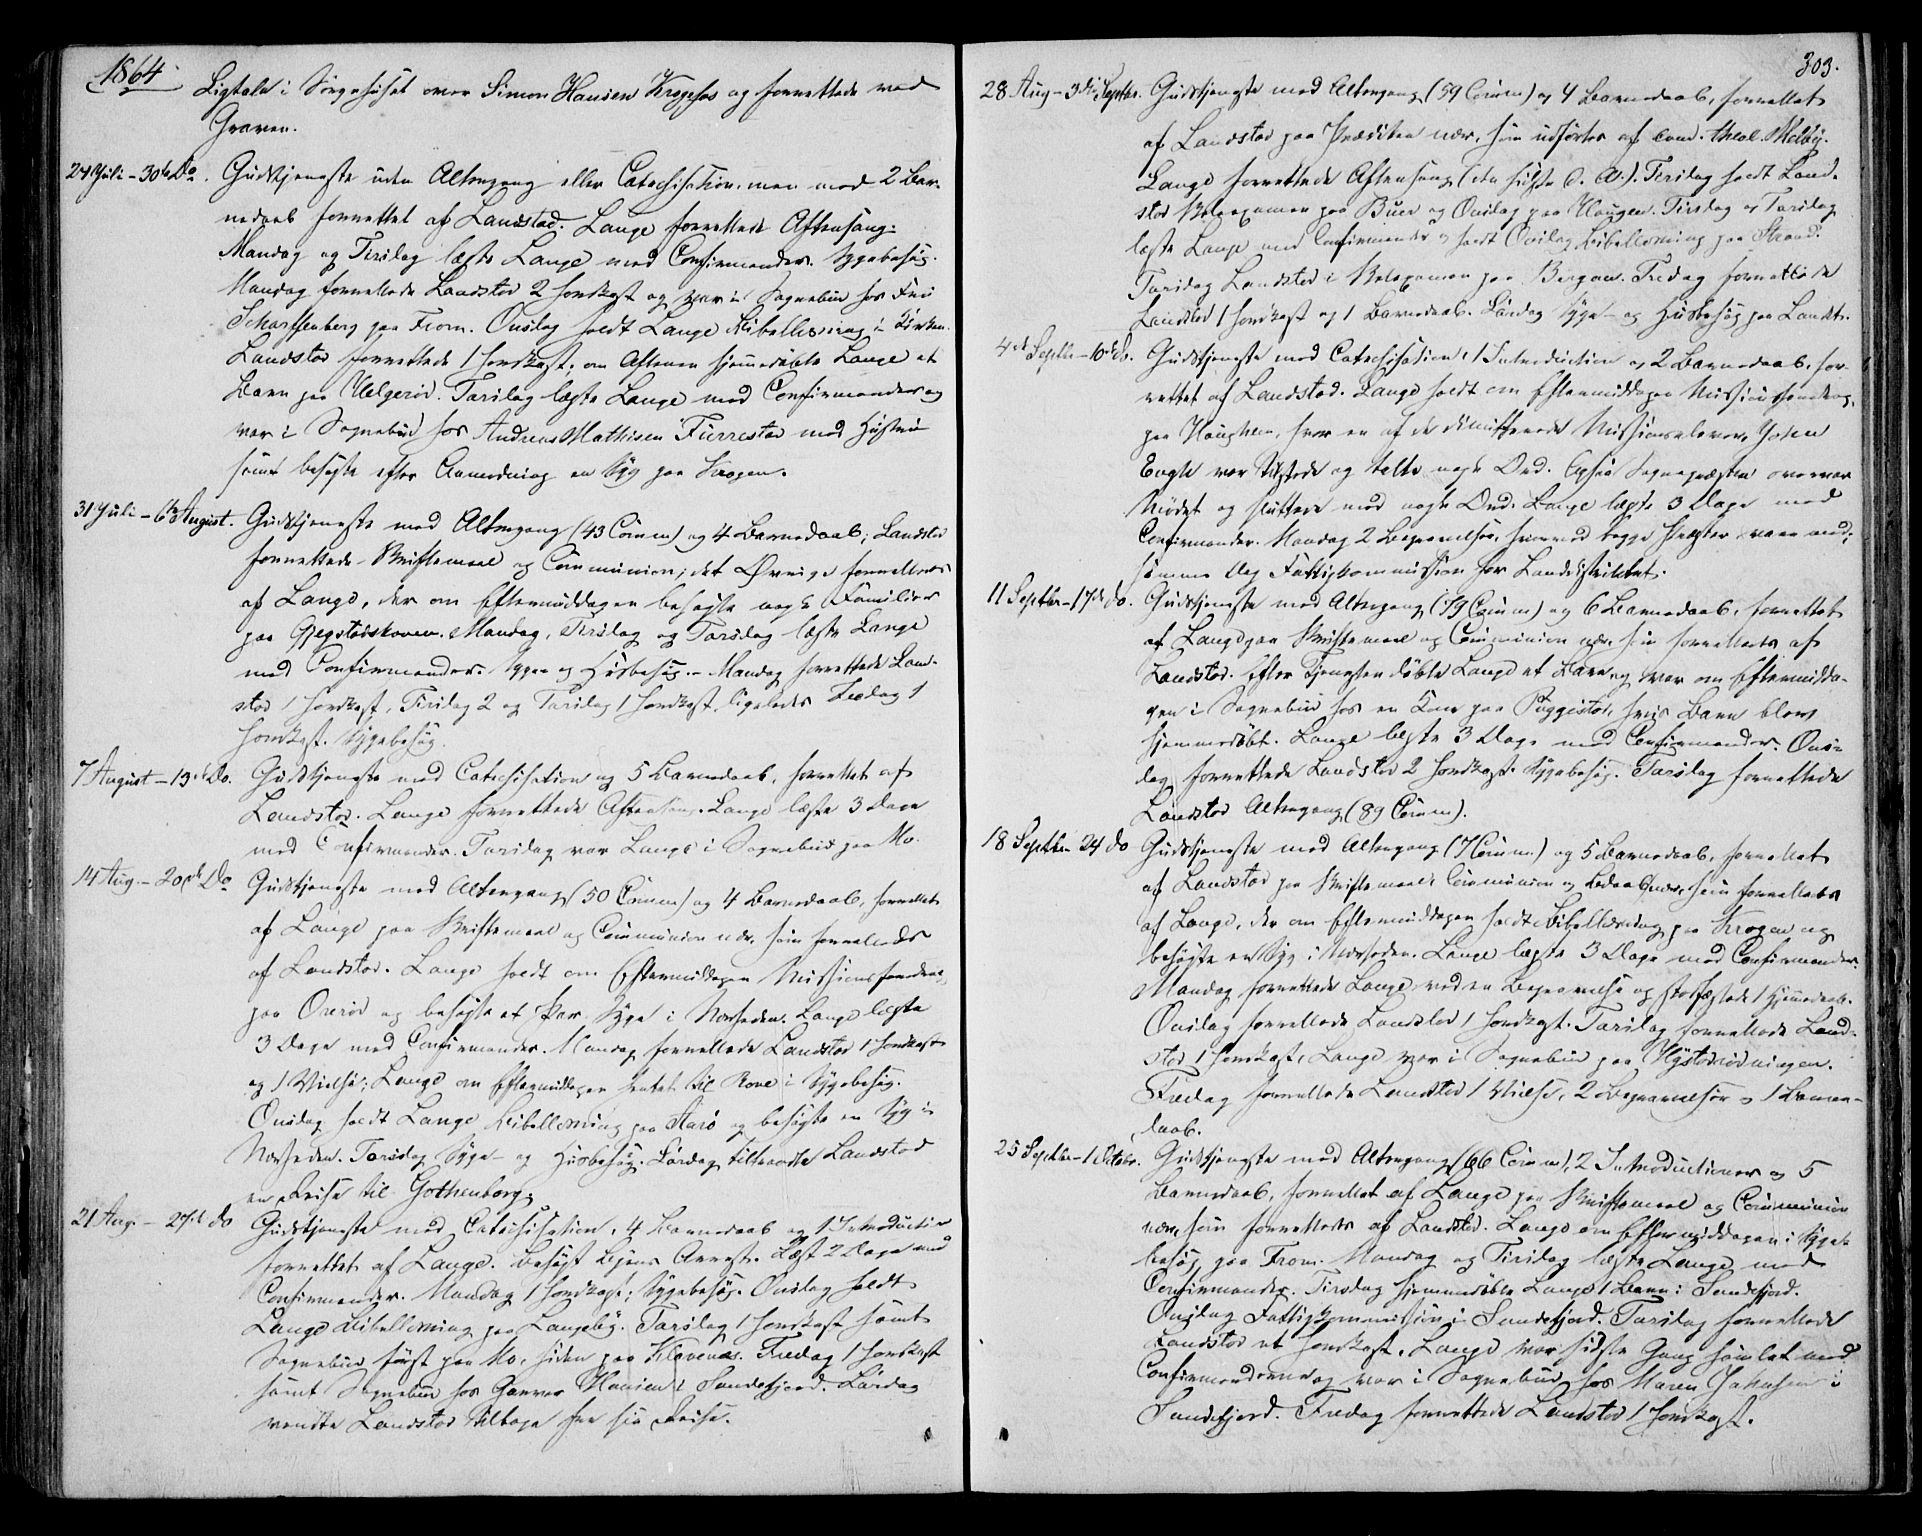 1864
Ligtale i Sørgehuset over Simon Hansen Krogsfos og forrettede ved
Graven.
24 Juli – 30te Do. Gudstjeneste uden Altergang eller Catechisation, men med 2 Bar-
nedaab forrettet af Landstad. Lange forrettede Aftensang.
Mandag og Tirsdag læste Lange med Confirmander. Sygebesøg.
Mandag forrettede Landstad 2 Jordkast og var i Sognebud hos Fru
Scharffenberg paa From. Onsdag holdt Lange Bibellæsning i Kirken.
Landstad forrettede 1 Jordkast, om Aftenen hjemmedøbte Lange et
Barn paa Helgerød. Torsdag læste Lange med Confirmander og
var i Sognebud hos Andreas Mathisen Furrestad med Hustru
samt besøgte efter Anmodning en Syg paa Krogen.
31 Juli – 6te August. Gudstjeneste med Altergang (43 Comm) og 4 Barnedaab; Landstad
forrettede Skriftemaal og Communion; det Øvrige forrettedes
af Lange, der om Eftermiddagen besøgte nogle Familier
paa Gjegstadskoven. Mandag, Tirsdag og Torsdag læste Lange
med Confirmander. Syge- og Husbesøg. – Mandag forrettede Land-
stad 1 Jordkast, Tirsdag 2 og Torsdag 1 Jordkast, ligeledes Fredag 1
Jordkast. Sygebesøg.
7 August – 13de Do. Gudstjeneste med Catechisation og 5 Barnedaab, forrettet af
Landstad. Lange forrettede Aftensang. Lange læste 3 Dage
med Confirmander. Torsdag var Lange i Sognebud paa Mo.
14 Aug. – 20de Do Gudstjeneste med Altergang (50 Comm) og 4 Barnedaab, forrettet
af Lange paa Skriftemaal og Communion nær, som forrettedes
af Landstad. Lange holdt om Eftermiddagen Missionsforedrag
paa Orerød og besøgte et Par Syge i Nærheden. Lange læste
3 Dage med Confirmander. Mandag forrettede Landstad 1 Jordkast
og 1 Vielse; Lange om Eftermiddagen hentet til Rove i Sygebesøg.
Onsdag holdt Lange Bibellæsning paa Aarø og besøgte en Syg i
Nærheden. Torsdag Syge- og Husbesøg. Lørdag tiltraadte Landstad
en Reise til Gothenborg.
21 Aug. – 27de do Gudstjeneste med Catechisation, 4 Barnedaab og 1 Introduction
forrettet af Lange. Besøgt Byens Arrest. Læst 2 Dage med
Confirmander. Mandag 1 Jordkast; Sygebesøg. Onsdag holdt
Lange Bibellæsning paa Langeby. Torsdag 1 Jordkast samt
Sognebud først paa Mo, siden paa Klavenæs. Fredag 1 Jordkast
samt Sognebud hos Hansen i Sandefjord. Lørdag
vendte Landstad tilbage fra sin Reise.
303.
28 Aug – 3die Septbr. Gudstjeneste med Altergang (59 Comm) og 4 Barnedaab, forrettet
af Landstad paa Prædiken nær, som udførtes af Cand. theol. Melby.
Lange forrettede Aftensang (den sidste d. A.). Tirsdag holdt Land-
stad Skoleexamen paa Buer og Onsdag paa Haugen. Tirsdag og Torsdag
læste Lange med Confirmander og holdt Onsdag Bibellæsning paa Strand.
Torsdag Landstad i Skoleexamen paa Bergan. Fredag forrettede
Landstad 1 Jordkast og 1 Barnedaab. Lørdag Syge- og Husbesøg paa Landet.
4de Septbr – 10de Do. Gudstjeneste med Catechisation, 1 Introduction og 2 Barnedaab, for-
rettet af Landstad. Lange holdt om Eftermiddagen Missionsforedrag
paa Haughem, hvor en af de dimitterede Missionselever, Johan
Engh var tilstede og talte nogle Ord. Ogsaa Sognepræsten overvar
Mødet og sluttede med nogle Ord. Lange læste 3 Dage med
Confirmander. Mandag 2 Begravelser, hvorved begge Præster vare med,
samme Dag Fattigkommission for Landdistriktet.
11 Septbr – 17de do. Gudstjeneste med Altergang (79 Comm) og 6 Barnedaab, forrettet
af Lange paa Skriftemaal og Communion nær, som forrettedes af
Landstad. Efter Tjenesten døbte Lange et Barn og var om Eftermidda-
gen i Sognebud hos en Kone paa Puggestad, hvis Barn blev
hjemmedøbt. Lange læste 3 Dage med Confirmander. Ons-
dag forrettede Landstad 2 Jordkast. Sygebesøg. Torsdag forrettede
Landstad Altergang (89 Comm).
18 Septbr – 24 do Gudstjeneste med Altergang (7 Comm) og 5 Barnedaab, forrettet
af Landstad paa Skriftemaal, Communion og Bedaab nær, som forrettedes
af Lange, der om Eftermiddagen holdt Bibellæsning paa Krogen og
besøgte en Syg i Nærheden. Lange læste 3 Dage med Confirmander.
Mandag forrettede Lange ved en Begravelse og stadfæstede 1 Hjemmedaab.
Onsdag forrettede Landstad 1 Jordkast. Torsdag forrettede Land-
stad 1 Jordkast, Lange var i Sognebud paa Hystadrødningen.
Fredag forrettede Landstad 1 Vielse, 2 Begravelser og 1 Barne-
daab.
25 Septbr – 1 October. Gudstjeneste med Altergang (66 Comm), 2 Introductioner og 5
Barnedaab, forrettet af Lange paa Skriftemaal og Communion
nær, som forrettedes af Landstad. Lange om Eftermiddagen i Syge-
besøg paa From. Mandag og Tirsdag læste Lange med
Confirmander. Tirsdag hjemmedøbte Lange 1 Barn i Sandefjord.
Onsdag Fattigkommission i Sandefjord. Torsdag forrettede
Landstad et Jordkast. Lange var sidste Gang samlet med
Confirmanderne og var i Sognebud hos Maren Jakobsen i
Sandefjord. Fredag forrettede Landstad 1 Jordkast.